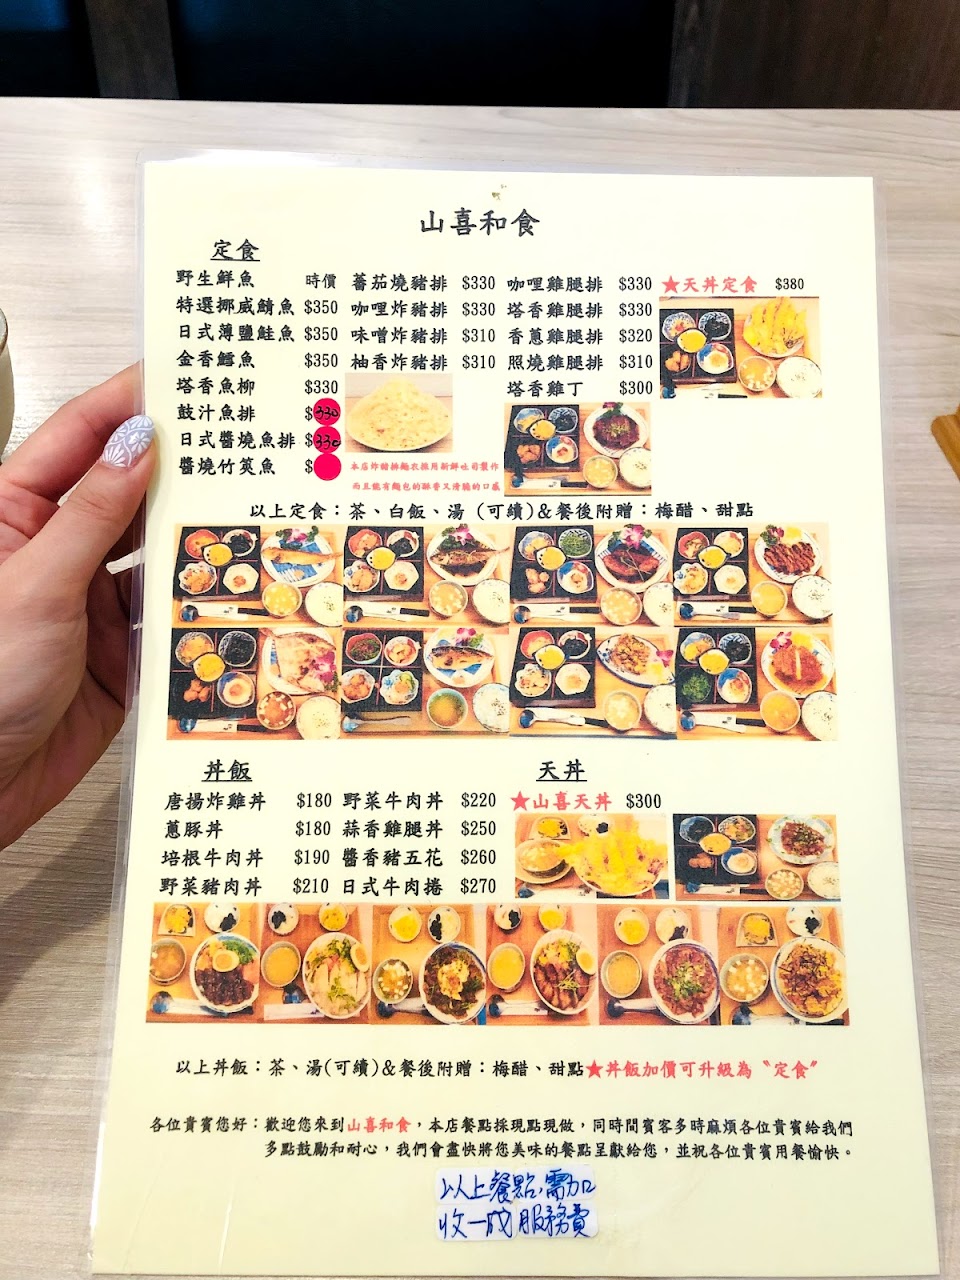 山喜和食
定食
野生鮮魚 時價
特選挪威鯖魚 $350
日式薄鹽鮭魚 $350
金香鱈魚 $350
塔香魚柳 $330
鼓汁魚排 $330
日式醬燒魚排 $330
醬燒竹筴魚 $
蕃茄燒豬排 $330
咖哩炸豬排 $330
味噌炸豬排 $310
柚香炸豬排 $310
本店炸豬排麵衣採用新鮮吐司製作
而且能有麵包的酥香又清脆的口感
咖哩雞腿排 $330
塔香雞腿排 $330
香蔥雞腿排 $320
照燒雞腿排 $310
塔香雞丁 $300
★天丼定食 $380
以上定食：茶、白飯、湯 (可續)&餐後附贈：梅醋、甜點
丼飯
唐揚炸雞丼 $180
蔥豚丼 $180
培根牛肉丼 $190
野菜豬肉丼 $210
野菜牛肉丼 $220
蒜香雞腿丼 $250
醬香豬五花 $260
日式牛肉捲 $270
天丼
★山喜天丼 $300
以上丼飯：茶、湯(可續)&餐後附贈：梅醋、甜點★丼飯加價可升級為〝定食〞
各位貴賓您好：歡迎您來到山喜和食，本店餐點採現點現做，同時間賓客多時麻煩各位貴賓給我們
多點鼓勵和耐心，我們會盡快將您美味的餐點呈獻給您，並祝各位貴賓用餐愉快。
以上餐點,需加
收一成服務費